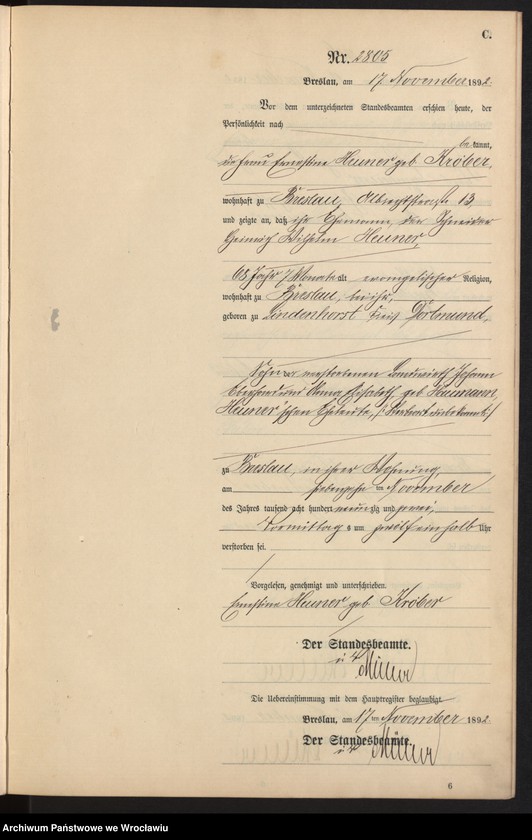 C.
Nr. 2805
Breslau, am 17 November 1892.
Vor dem unterzeichneten Standesbeamten erschien heute, der
Persönlichkeit nach
be kannt,
die Frau Ernestine Heuner geb Kröber,
wohnhaft zu Breslau, Albrechtstraße 13,
und zeigte an, daß ihr Ehemann, der Schneider
Heinrich Wilhelm Heuner,
68 Jahr 7 Monate alt evangelischer Religion,
wohnhaft zu Breslau, bei ihr,
geboren zu Lindenhorst Kreis Dortmund,
Sohn der verstorbenen Landwirth Johann
Eberhard und Anna Elisabeth, geb Haumann,
Heuner'schen Eheleute,
zu Breslau, in ihrer Wohnung,
am November
des Jahres tausend acht hundert neunzig und zwei,
Vormittags um zwölf einhalb Uhr
verstorben sei.
Vorgelesen, genehmigt und unterschrieben.
Ernestine Heuner geb Kröber
Der Standesbeamte.
Die Uebereinstimmung mit dem Hauptregister beglaubigt.
Breslau, am 17 ten November 1892.
Der Standesbeamte.
6
Archiwum Państwowe we Wrocławiu